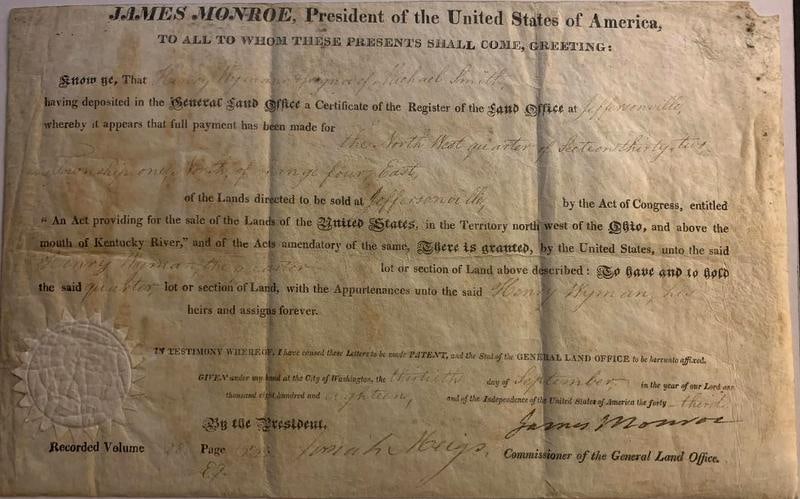 JAMES MONROE, President of the United States of America,
TO ALL TO WHOM THESE PRESENTS SHALL COME, GREETING:
Know ye, That Henry Wyman assignee of Michael Smith
having deposited in the General Land Office a Certificate of the Register of the Land Office at Jeffersonville,
whereby it appears that full payment has been made for
the North West quarter of Section thirty two,
township one, North, of range four, East,
of the Lands directed to be sold at Jeffersonville, by the Act of Congress, entitled
“An Act providing for the sale of the Lands of the United States, in the Territory north west of the Ohio, and above the
mouth of Kentucky River,” and of the Acts amendatory of the same, There is granted, by the United States, unto the said
Henry Wyman, the quarter lot or section of Land above described: To have and to hold
the said quarter lot or section of Land, with the Appurtenances unto the said Henry Wyman, his
heirs and assigns forever.
IN TESTIMONY WHEREOF, I have caused these Letters to be made PATENT, and the Seal of the GENERAL LAND OFFICE to be hereunto affixed.
GIVEN under my hand at the City of Washington, the thirtieth day of September in the year of our Lord one
thousand eight hundred and eighteen, and of the Independence of the United States of America the forty-third.
By the President, James Monroe
Josiah Meigs, Commissioner of the General Land Office.
Recorded Volume Page